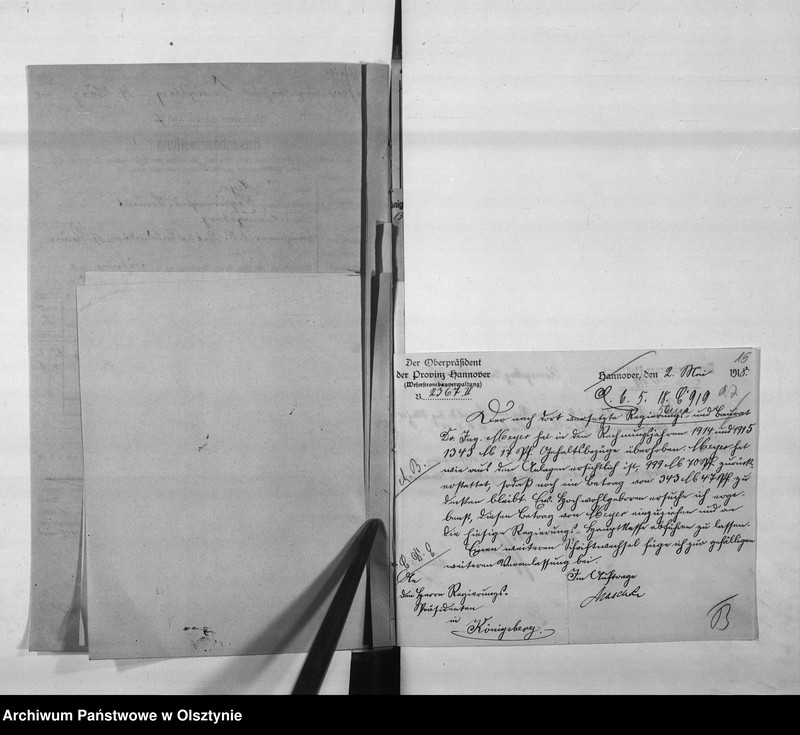 15
Der Oberpräsident
der Provinz Hannover
(Weserstrombauverwaltung)
B. 2367 II
Hannover, den 2. Mai 1915.
Der nach dort versetzte Regierungs- und Baurat
Dr. Ing. Meyer hat in den Rechnungsjahren 1914 und 1915
1343 M 17 Pf. Gehaltsbezüge überhoben. Meyer hat
wie aus den Anlagen ersichtlich ist, 999 M 70 Pf. zurück-
erstattet, sodaß noch ein Betrag von 343 M 47 Pf. zu
decken bleibt. Ew. Hochwohlgeboren ersuche ich erge-
benst, diesen Betrag von Meyer einzuziehen und an
die hiesige Regierungs-Hauptkasse abführen zu lassen.
Einen weiteren Schriftwechsel füge ich zur gefälligen
weiteren Veranlassung bei.
Im Auftrage
An
den Herrn Regierungs-
Präsidenten
in
Königsberg.
B
Archiwum Państwowe w Olsztynie